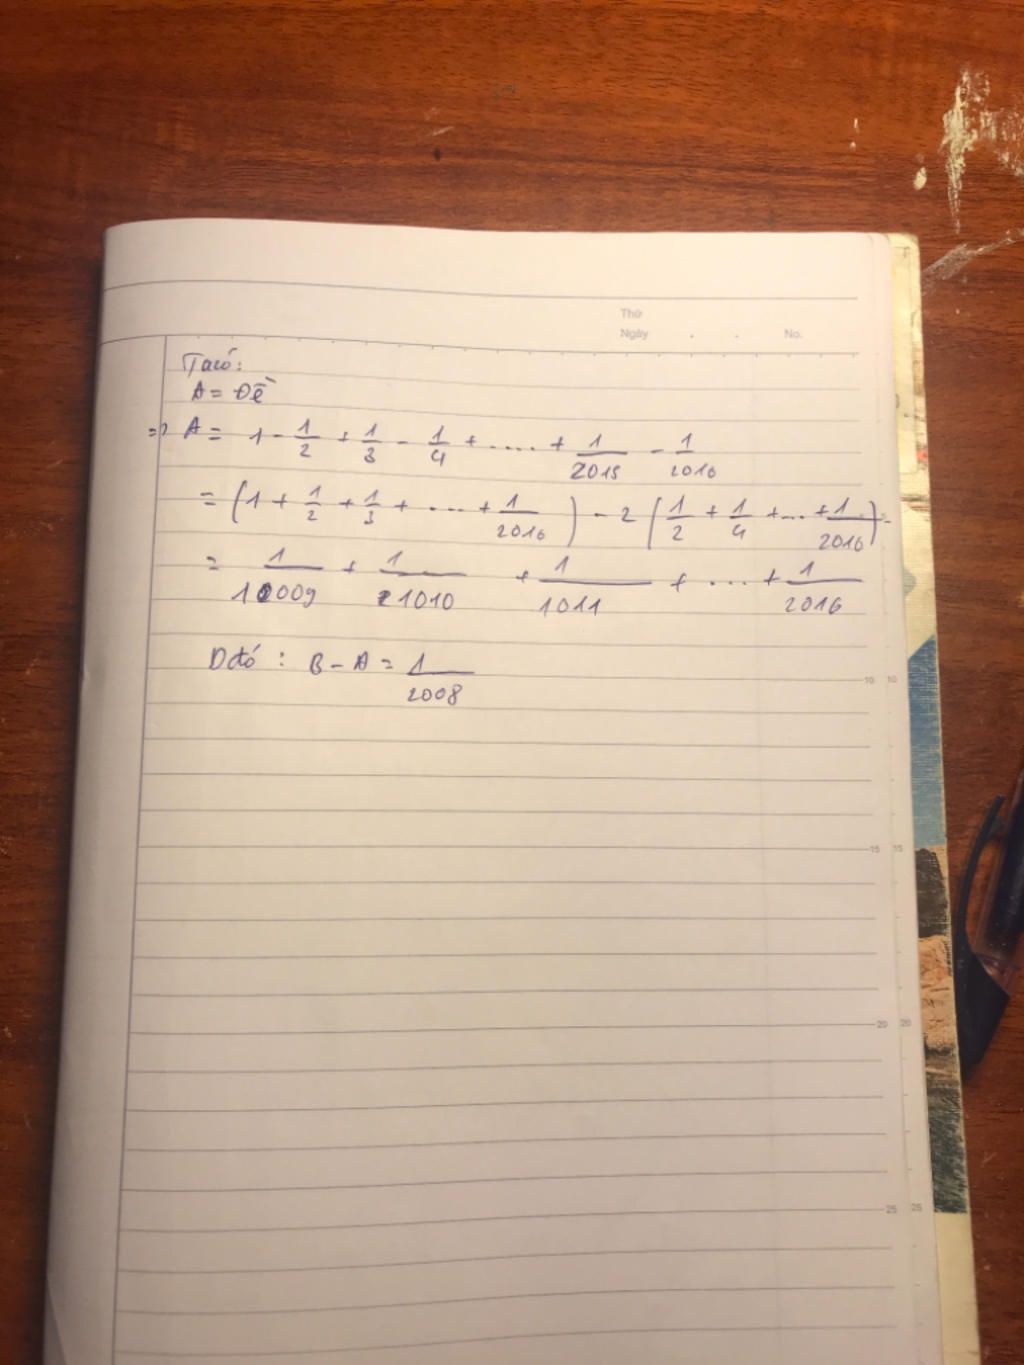 Thứ
Ngày . . No.
Ta có:
A = Đề
=> A = 1 - 1/2 + 1/3 - 1/4 + .... + 1/2015 - 1/2016
= (1 + 1/2 + 1/3 + .... + 1/2016) - 2 (1/2 + 1/4 + ... + 1/2016)
= 1/1009 + 1/1010 + 1/1011 + ... + 1/2016
Dđó : B - A = 1/2008
10 10
15 15
20 20
25 25